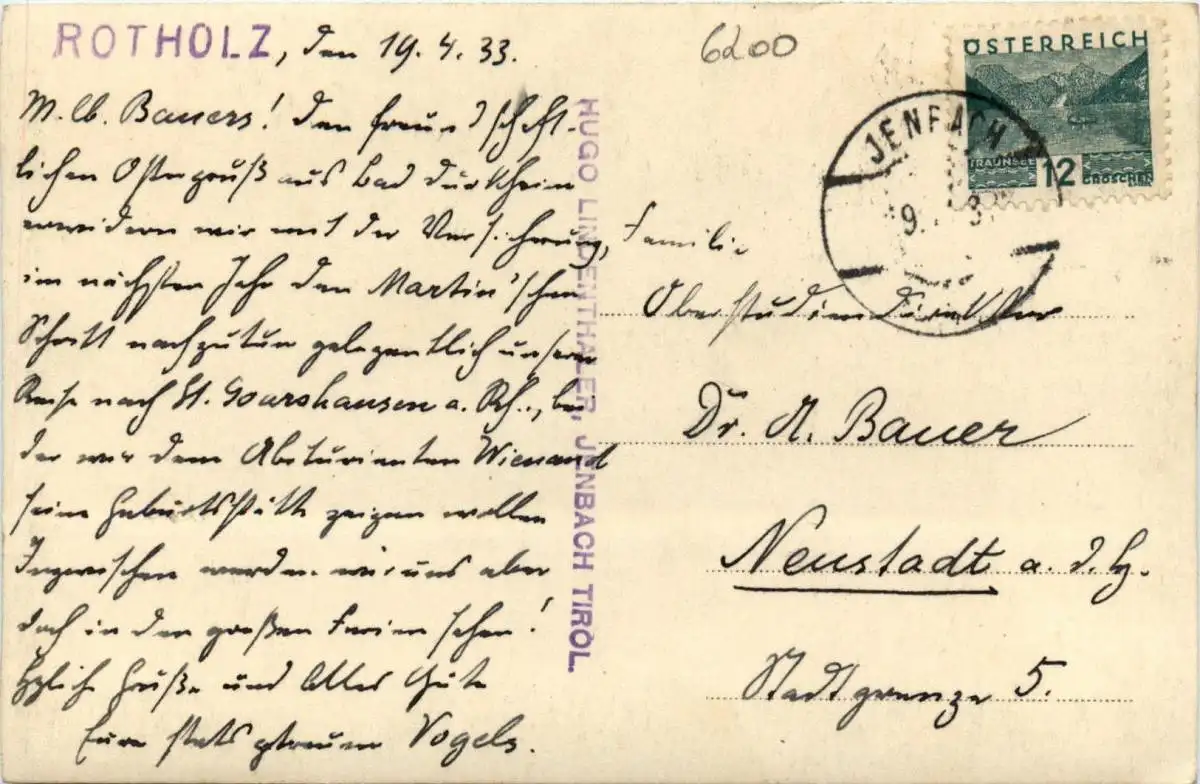 ROTHOLZ, den 19.4.33.
M. lb. Bauers! Den freundschaft-
lichen Ostergruß aus Bad Dürkheim
erwidern wir mit der Versicherung,
im nächsten Jahr den Martin'schen
Schritt nachzutun gelegentlich unserer
Reise nach St. Goarshausen a. Rh., bei
der wir dem Abiturienten Wienand
seine Geburtsstätte zeigen wollen
Inzwischen werden wir uns aber
doch in den großen Ferien sehen!
Hzliche Grüße und Alles Gute
Eure stets getreuen Vogels.
HUGO LINDENTHALER, JENBACH TIROL.
6200
ÖSTERREICH
TRAUNSEE 12 GROSCHEN
JENBACH
Familie
Oberstudiendirektor
Dr. A. Bauer
Neustadt a. d. H.
Stadtgrenze 5.